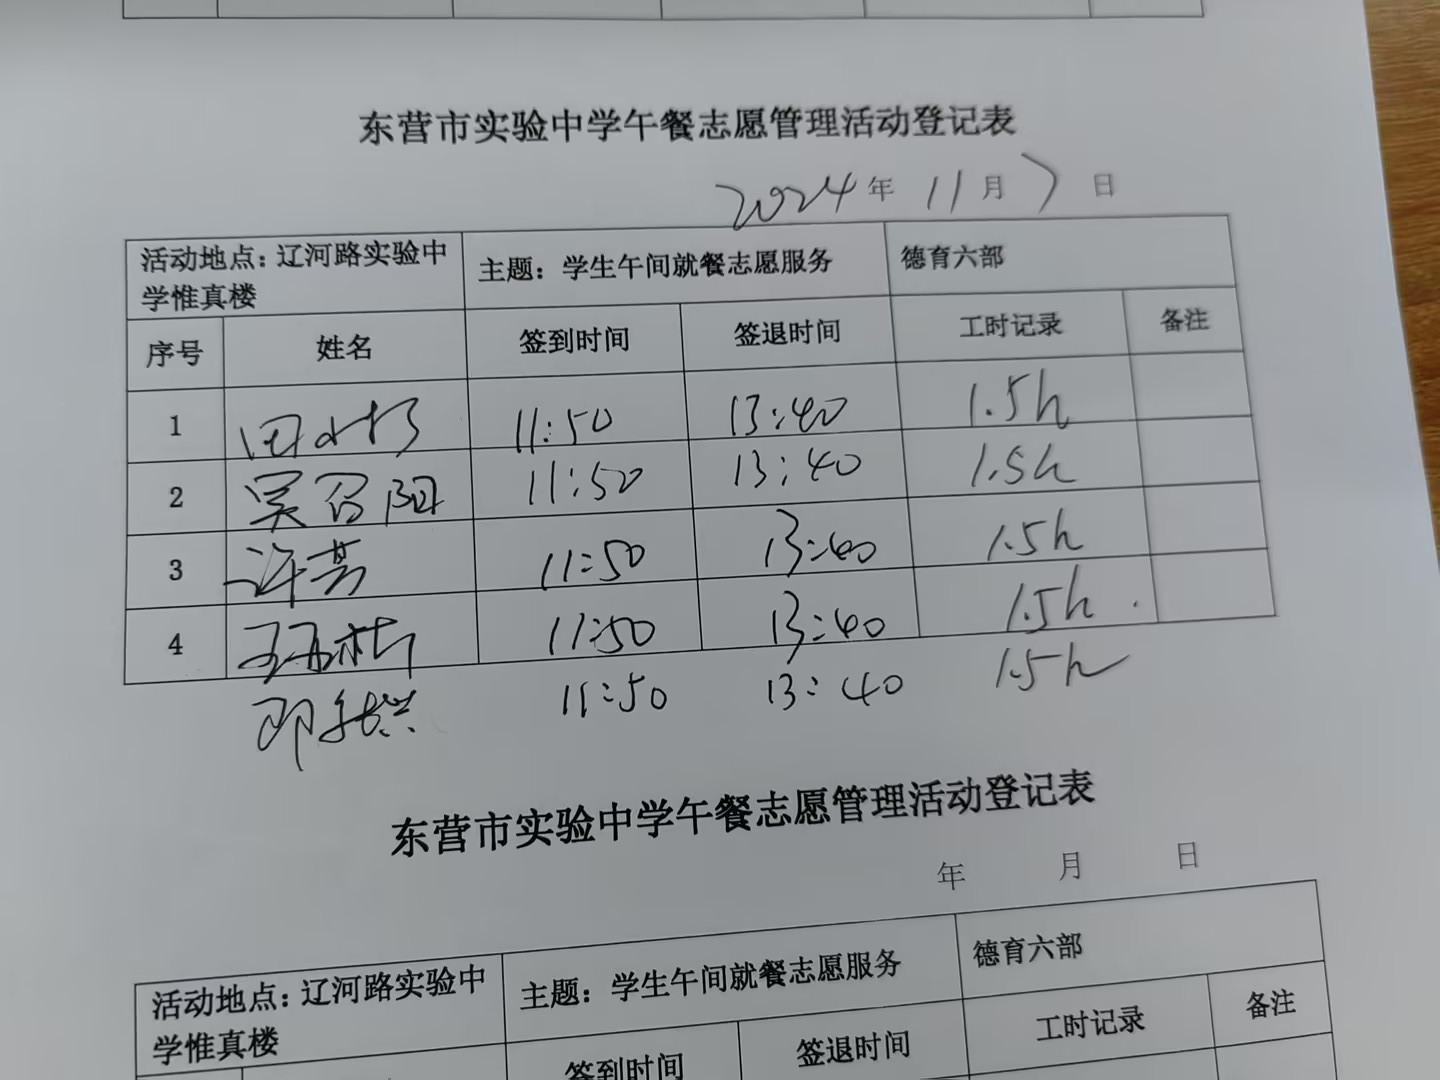 东营市实验中学午餐志愿管理活动登记表
2024年 11月 7日
活动地点：辽河路实验中学惟真楼 主题：学生午间就餐志愿服务 德育六部
序号 姓名 签到时间 签退时间 工时记录 备注
1 11:50 13:40 1.5h
2 吴召阳 11:50 13:40 1.5h
3 许芸 11:50 13:40 1.5h
4 11:50 13:40 1.5h
11:50 13:40 1.5h
东营市实验中学午餐志愿管理活动登记表
年 月 日
活动地点：辽河路实验中学惟真楼 主题：学生午间就餐志愿服务 德育六部
签到时间 签退时间 工时记录 备注